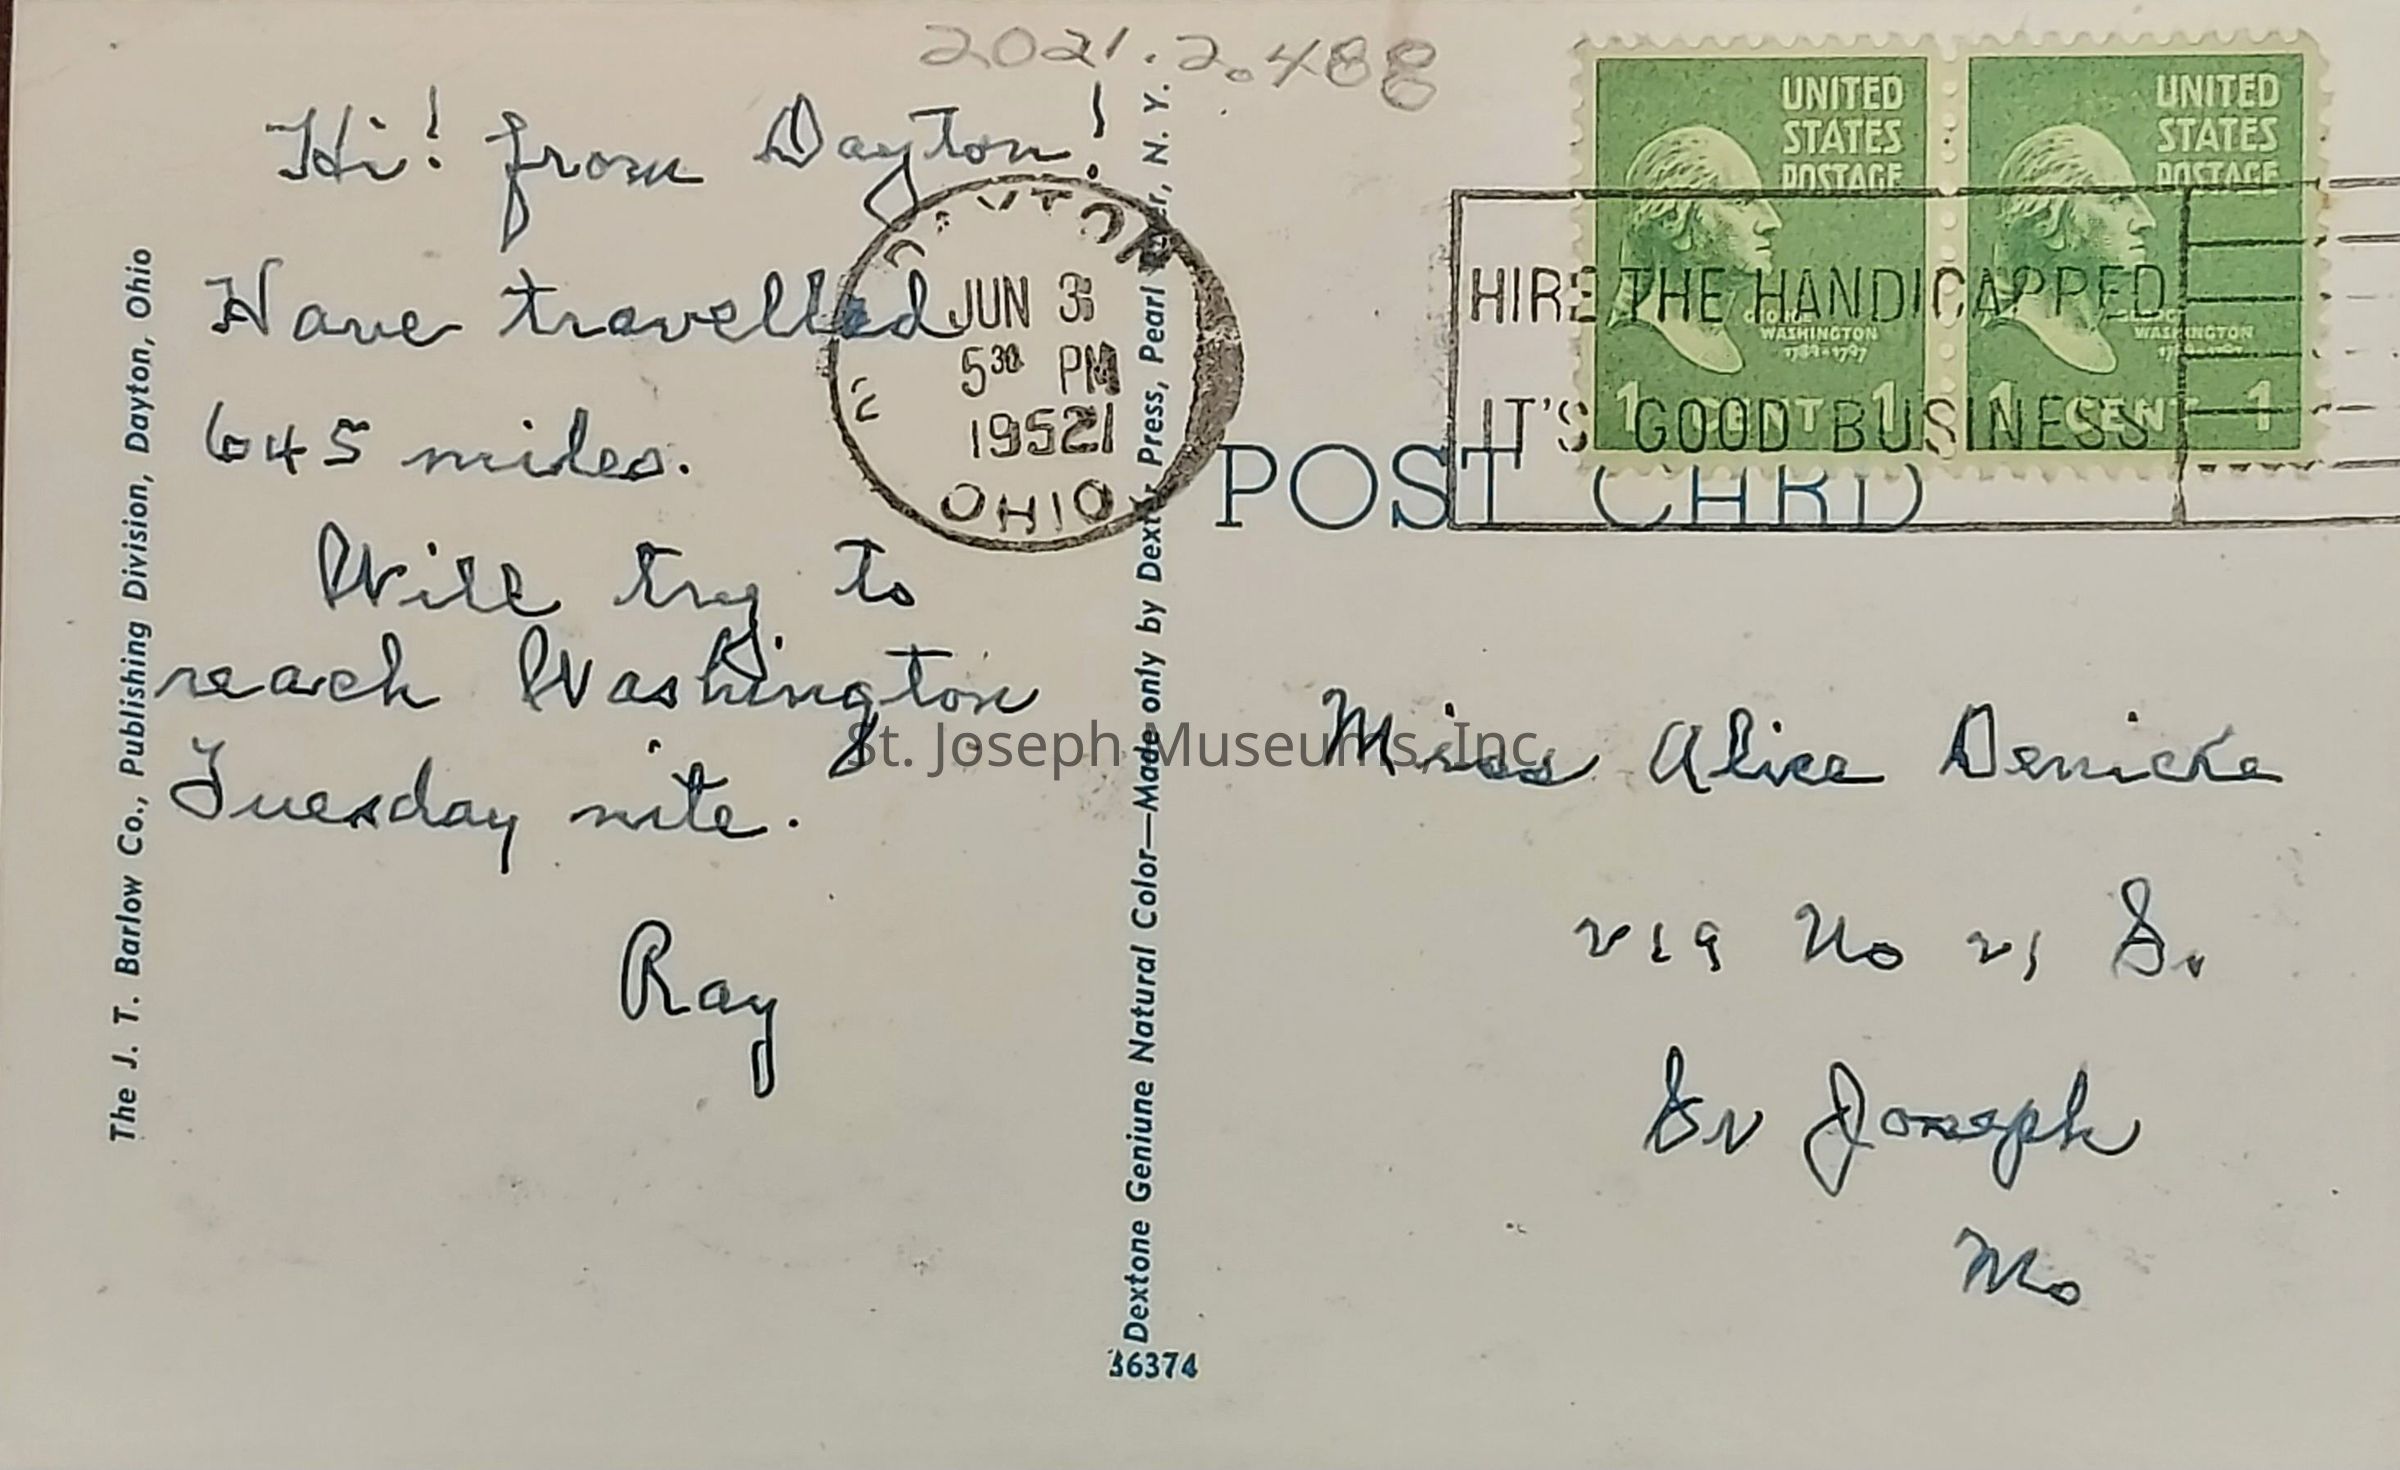 2021.2.488
Hi! from Dayton!
Have travelled
645 miles.
Will try to
reach Washington
Tuesday nite.
Ray
The J. T. Barlow Co., Publishing Division, Dayton, Ohio
DAYTON
JUN 3
5 30 PM
1952
OHIO
Dextone Geniune Natural Color—Made only by Dexter Press, Pearl River, N. Y.
36374
UNITED
STATES
POSTAGE
GEORGE
WASHINGTON
1789-1797
1 CENT 1
UNITED
STATES
POSTAGE
GEORGE
WASHINGTON
1 CENT 1
HIRE THE HANDICAPPED
IT'S GOOD BUSINESS
POST CARD
Miss Alice Denicke
No 21 S.
St Joseph
Mo
St. Joseph Museums, Inc